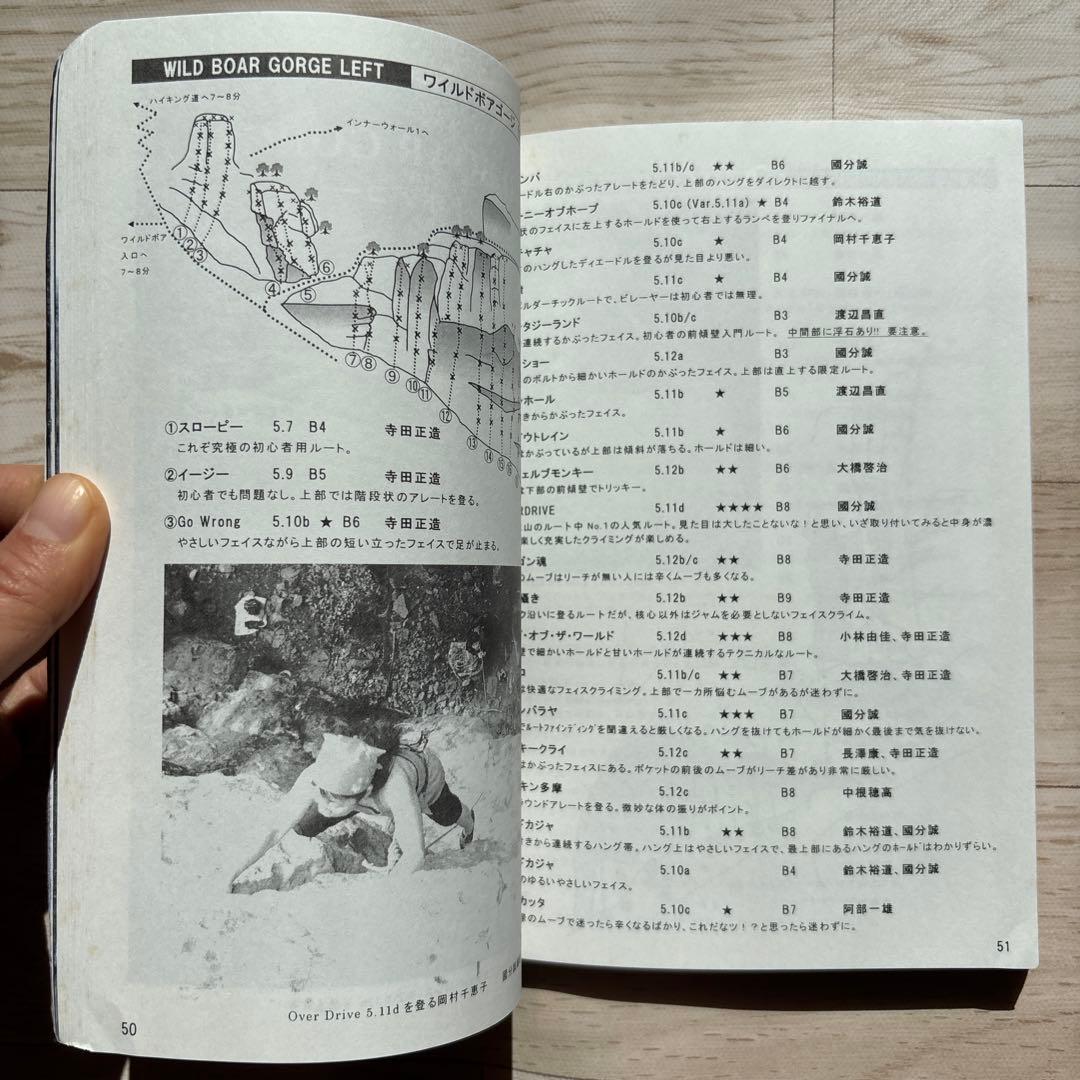 WILD BOAR GORGE LEFT
ワイルドボアゴージ
ハイキング道へ7〜8分
インナーウォール1へ
ワイルドボア
入口へ
7〜8分
① ② ③ ④ ⑤ ⑥ ⑦ ⑧ ⑨ ⑩ ⑪ ⑫ ⑬ ⑭ ⑮ ⑯
①スローピー 5.7 B4 寺田正造
これぞ究極の初心者用ルート。
②イージー 5.9 B5 寺田正造
初心者でも問題なし。上部では階段状のアレートを登る。
③Go Wrong 5.10b ★ B6 寺田正造
やさしいフェイスながら上部の短い立ったフェイスで足が止まる。
Over Drive 5.11dを登る岡村千恵子 國分誠
50
ンバ 5.11b/c ★★ B6 國分誠
ードル右のかぶったアレートをたどり、上部のハングをダイレクトに越す。
ーニーオブホープ 5.10c (Var.5.11a) ★ B4 鈴木裕道
状のフェイスに左上するホールドを使って右上するランペを登りファイナルへ。
チャチャ 5.10c ★ B4 岡村千恵子
のハングしたディエードルを登るが見た目より悪い。
5.11c ★ B4 國分誠
ルダーチックルートで、ビレーヤーは初心者では無理。
タジーランド 5.10b/c B3 渡辺昌直
連続するかぶったフェイス。初心者の前傾壁入門ルート。 中間部に浮石あり!! 要注意。
ショー 5.12a B3 國分誠
のボルトから細かいホールドのかぶったフェイス。上部は直上する限定ルート。
ホール 5.11b ★ B5 渡辺昌直
きからかぶったフェイス。
ウトレイン 5.11b ★ B6 國分誠
かぶっているが上部は傾斜が落ちる。ホールドは細い。
ェルブモンキー 5.12b ★★ B6 大橋啓治
下部の前傾壁でトリッキー。
RDRIVE 5.11d ★★★★ B8 國分誠
山のルート中 No.1の人気ルート。見た目は大したことないな！と思い、いざ取り付いてみると中身が濃
楽しく充実したクライミングが楽しめる。
ゴン魂 5.12b/c ★★ B8 寺田正造
のムーブはリーチが無い人には辛くムーブも多くなる。
囁き 5.12b ★★ B9 寺田正造
ク沿いに登るルートだが、核心以外はジャムを必要としないフェイスクライム。
・オブ・ザ・ワールド 5.12d ★★★ B8 小林由佳、寺田正造
で細かいホールドと甘いホールドが連続するテクニカルなルート。
ロ 5.11b/c ★★ B7 大橋啓治、寺田正造
快適なフェイスクライミング。上部で一カ所悩むムーブがあるが迷わずに。
ンバラヤ 5.11c ★★★ B7 國分誠
ルートファインディングを間違えると厳しくなる。ハングを抜けてもホールドが細かく最後まで気を抜けない。
キークライ 5.12c ★★ B7 長澤康、寺田正造
かぶったフェイスにある。ポケットの前後のムーブがリーチ差があり非常に厳しい。
キン多摩 5.12c B8 中根穂高
ウンドアレートを登る。微妙な体の振りがポイント。
ドカジャ 5.11b ★★ B8 鈴木裕道、國分誠
きから連続するハング帯。ハング上はやさしいフェイスで、最上部にあるハングのホールドはわかりずらい。
ドカジャ 5.10a B4 鈴木裕道、國分誠
のゆるいやさしいフェイス。
カッタ 5.10c ★ B7 阿部一雄
のムーブで迷ったら辛くなるばかり、これだなッ！？と思ったら迷わずに。
51